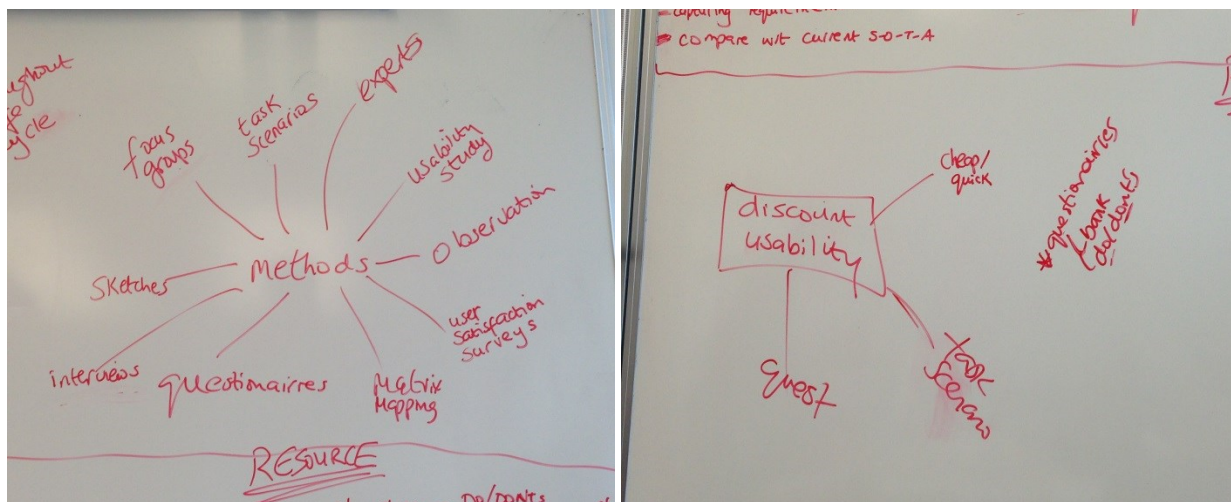 ughout
ycle
focus
groups
task
scenarios
experts
usability
study
Observation
methods
sketches
user
satisfaction
surveys
interviews
questionairres
Matrix
Mapping
RESOURCE
DO/DONTS
capturing requirement
compare wit current S-O-T-A
discount
usability
cheap/
quick
* questionairies
bank
do/donts
quest
Task
Scenario